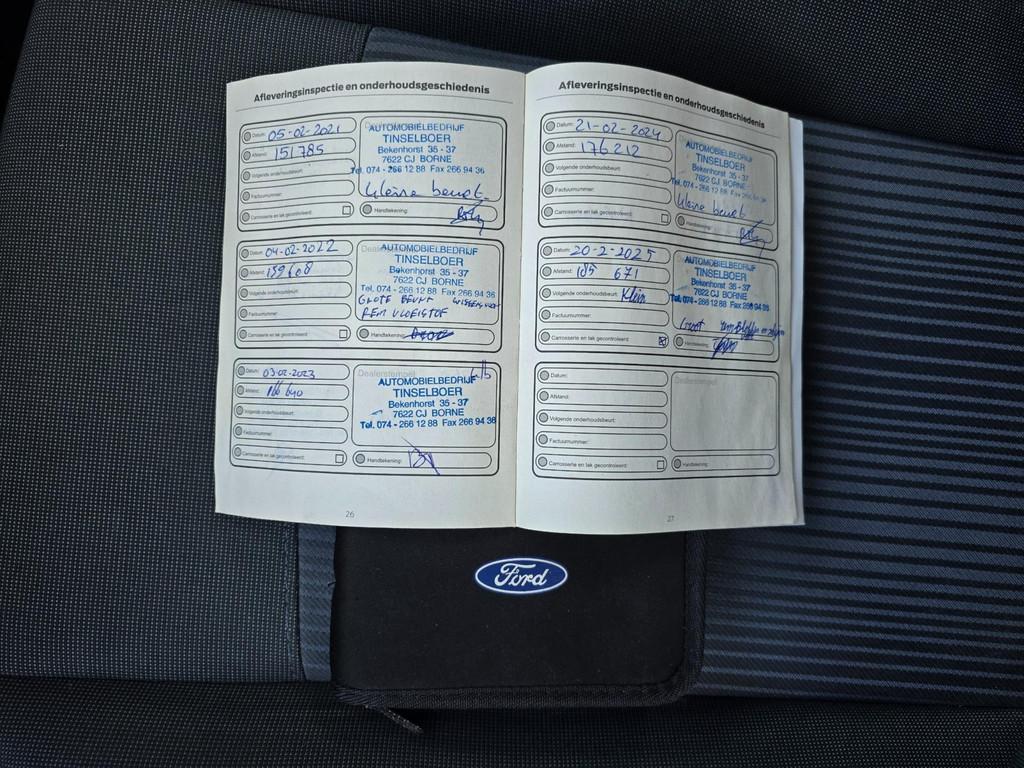 Afleveringsinspectie en onderhoudsgeschiedenis
Datum: 05-02-2021
Afstand: 151785
Volgende onderhoudsbeurt:
Factuurnummer:
Carrosserie en lak gecontroleerd:
AUTOMOBIELBEDRIJF
TINSELBOER
Bekenhorst 35 - 37
7622 CJ BORNE
Tel. 074 - 266 12 88 Fax 266 94 36
kleine beurt
Handtekening:
Datum: 04-02-2022
Afstand: 159608
Volgende onderhoudsbeurt:
Factuurnummer:
Carrosserie en lak gecontroleerd:
AUTOMOBIELBEDRIJF
TINSELBOER
Bekenhorst 35 - 37
7622 CJ BORNE
Tel. 074 - 266 12 88 Fax 266 94 36
GROTE BEURT
REM VLOEISTOF
Handtekening:
Datum: 03-02-2023
Afstand: 166640
Volgende onderhoudsbeurt:
Factuurnummer:
Carrosserie en lak gecontroleerd:
Dealerstempel
AUTOMOBIELBEDRIJF
TINSELBOER
Bekenhorst 35 - 37
7622 CJ BORNE
Tel. 074 - 266 12 88 Fax 266 94 36
Handtekening:
26
Afleveringsinspectie en onderhoudsgeschiedenis
Datum: 21-02-2024
Afstand: 176212
Volgende onderhoudsbeurt:
Factuurnummer:
Carrosserie en lak gecontroleerd:
AUTOMOBIELBEDRIJF
TINSELBOER
Bekenhorst 35 - 37
7622 CJ BORNE
Tel. 074 - 266 12 88 Fax 266 94 36
kleine beurt
Handtekening:
Datum: 20-2-2025
Afstand: 185 671
Volgende onderhoudsbeurt: Klein
Factuurnummer:
Carrosserie en lak gecontroleerd:
AUTOMOBIELBEDRIJF
TINSELBOER
Bekenhorst 35 - 37
7622 CJ BORNE
Tel. 074 - 266 12 88 Fax 266 94 36
Groot
Handtekening:
Datum:
Afstand:
Volgende onderhoudsbeurt:
Factuurnummer:
Carrosserie en lak gecontroleerd:
Dealerstempel
Handtekening:
27
Ford